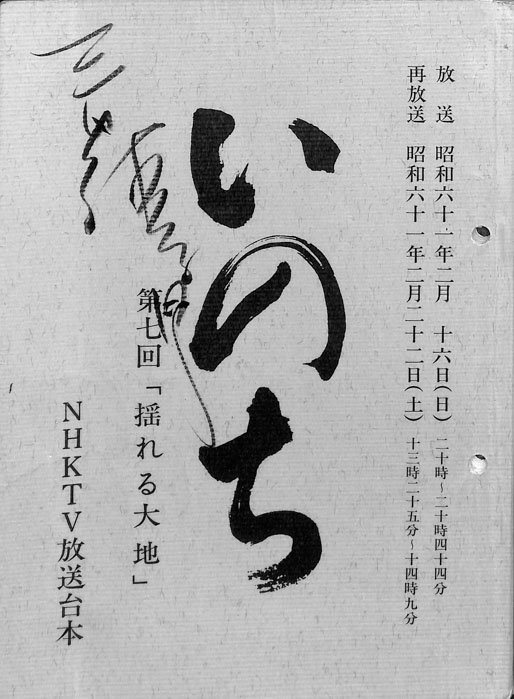 放送　昭和六十一年二月　十六日(日)　二十時～二十時四十四分
再放送　昭和六十一年二月二十二日(土)　十三時二十五分～十四時九分
いのち
第七回「揺れる大地」
NHKTV放送台本